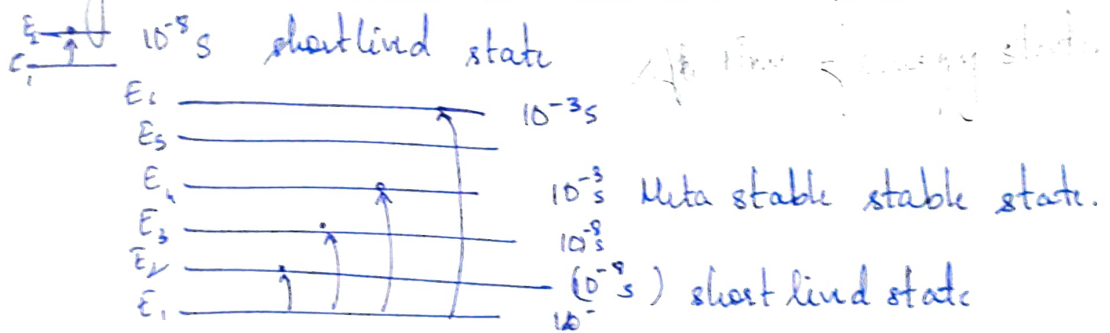 E₂ 10⁻⁸s short lived state
E₁
E₆ 10⁻³s
E₅
E₄ 10⁻³s Meta stable stable state.
E₃ 10⁻⁸s
E₂ (10⁻⁸s) short lived state
E₁ 10⁻